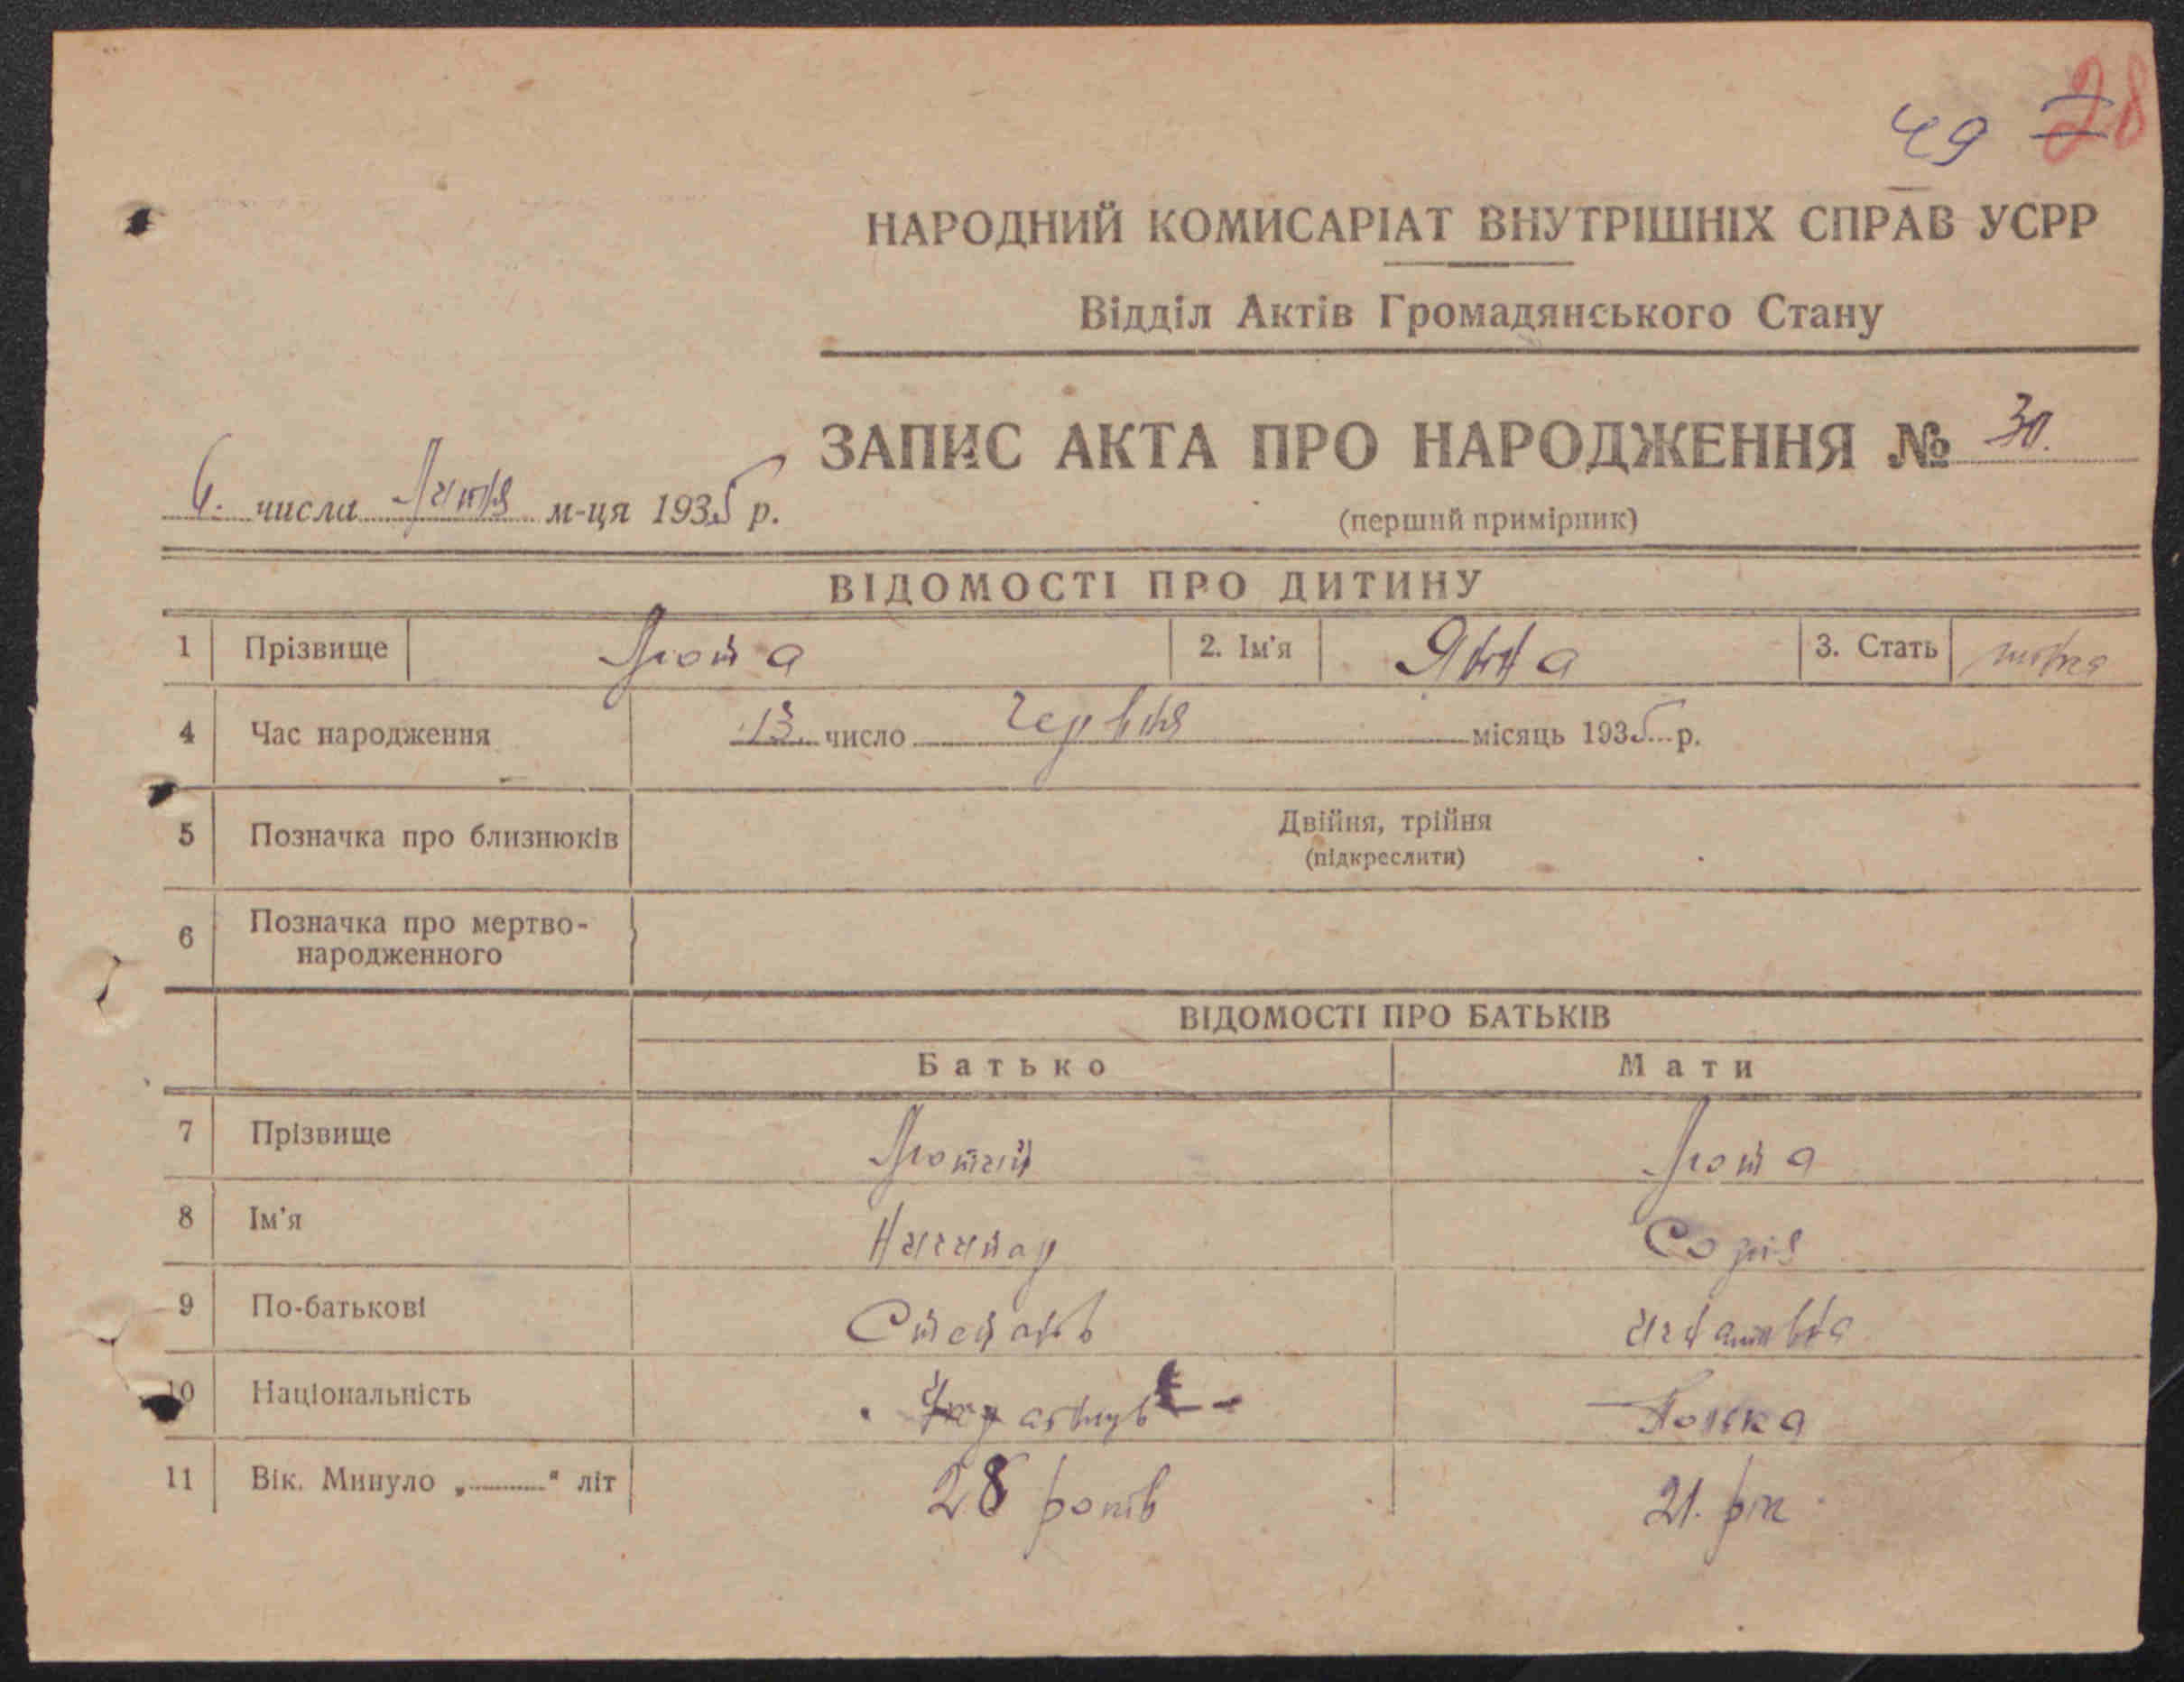 49 28
НАРОДНИЙ КОМИСАРІАТ ВНУТРІШНІХ СПРАВ УСРР
Відділ Актів Громадянського Стану
ЗАПИС АКТА ПРО НАРОДЖЕННЯ № 30.
6. числа Липня м-ця 1935 р.
(перший примірник)
ВІДОМОСТІ ПРО ДИТИНУ
1 Прізвище Люта 2. Ім'я Яніна 3. Стать
4 Час народження 13. число Червня місяць 1935 р.
5 Позначка про близнюків Двійня, трійня
(підкреслити)
6 Позначка про мертво-
народженного
ВІДОМОСТІ ПРО БАТЬКІВ
Батько Мати
7 Прізвище Лютий Люта
8 Ім'я Ничипар Софія
9 По-батькові Степанов
10 Національність Полька
11 Вік. Минуло „ “ літ 28 років 21. рік